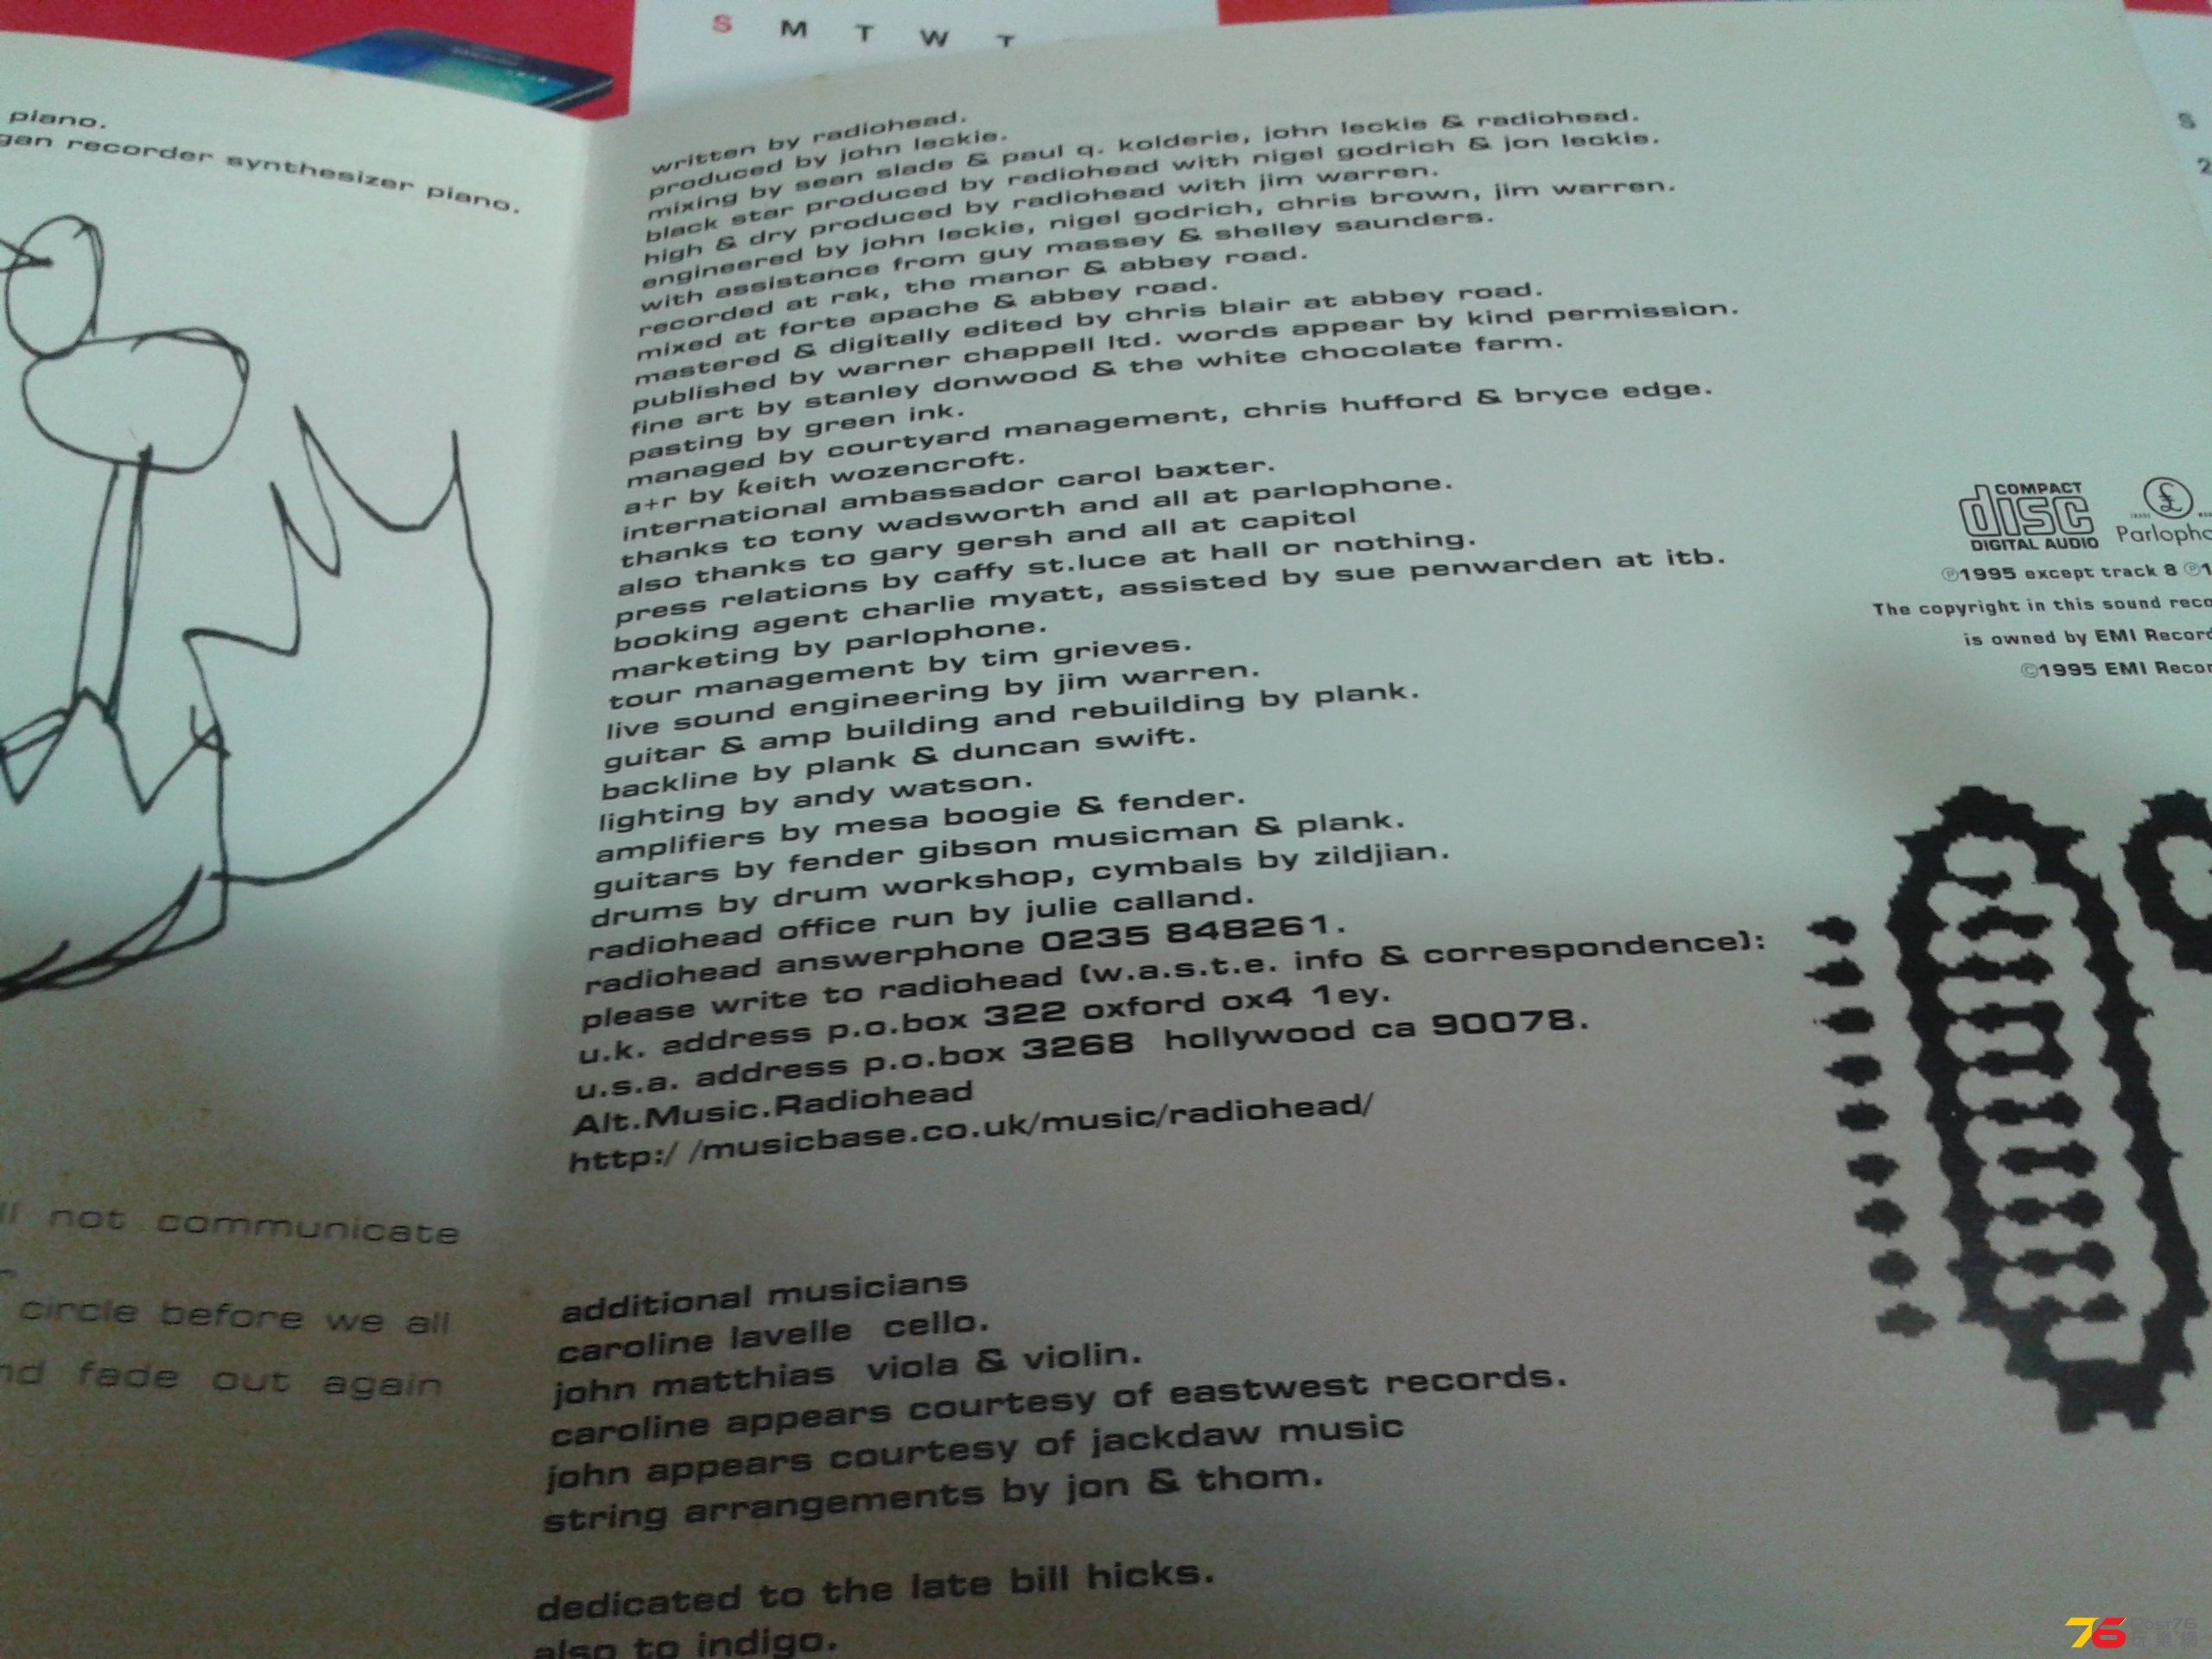 S M T W T
piano.
recorder synthesizer piano.
not communicate
circle before we all
fade out again
written by radiohead.
produced by john leckie.
mixing by sean slade & paul q. kolderie, john leckie & radiohead.
black star produced by radiohead with nigel godrich & jon leckie.
high & dry produced by radiohead with jim warren.
engineered by john leckie, nigel godrich, chris brown, jim warren.
with assistance from guy massey & shelley saunders.
recorded at rak, the manor & abbey road.
mixed at forte apache & abbey road.
mastered & digitally edited by chris blair at abbey road.
published by warner chappell ltd. words appear by kind permission.
fine art by stanley donwood & the white chocolate farm.
pasting by green ink.
managed by courtyard management, chris hufford & bryce edge.
a+r by keith wozencroft.
international ambassador carol baxter.
thanks to tony wadsworth and all at parlophone.
also thanks to gary gersh and all at capitol
press relations by caffy st.luce at hall or nothing.
booking agent charlie myatt, assisted by sue penwarden at itb.
marketing by parlophone.
tour management by tim grieves.
live sound engineering by jim warren.
guitar & amp building and rebuilding by plank.
backline by plank & duncan swift.
lighting by andy watson.
amplifiers by mesa boogie & fender.
guitars by fender gibson musicman & plank.
drums by drum workshop, cymbals by zildjian.
radiohead office run by julie calland.
radiohead answerphone 0235 848261.
please write to radiohead (w.a.s.t.e. info & correspondence):
u.k. address p.o.box 322 oxford ox4 1ey.
u.s.a. address p.o.box 3268 hollywood ca 90078.
Alt.Music.Radiohead
http:/ /musicbase.co.uk/music/radiohead/
additional musicians
caroline lavelle cello.
john matthias viola & violin.
caroline appears courtesy of eastwest records.
john appears courtesy of jackdaw music
string arrangements by jon & thom.
dedicated to the late bill hicks.
also to indigo.
COMPACT
disc
DIGITAL AUDIO
Parlopho
℗1995 except track 8 ℗1
The copyright in this sound reco
is owned by EMI Record
©1995 EMI Recor
S
2
76